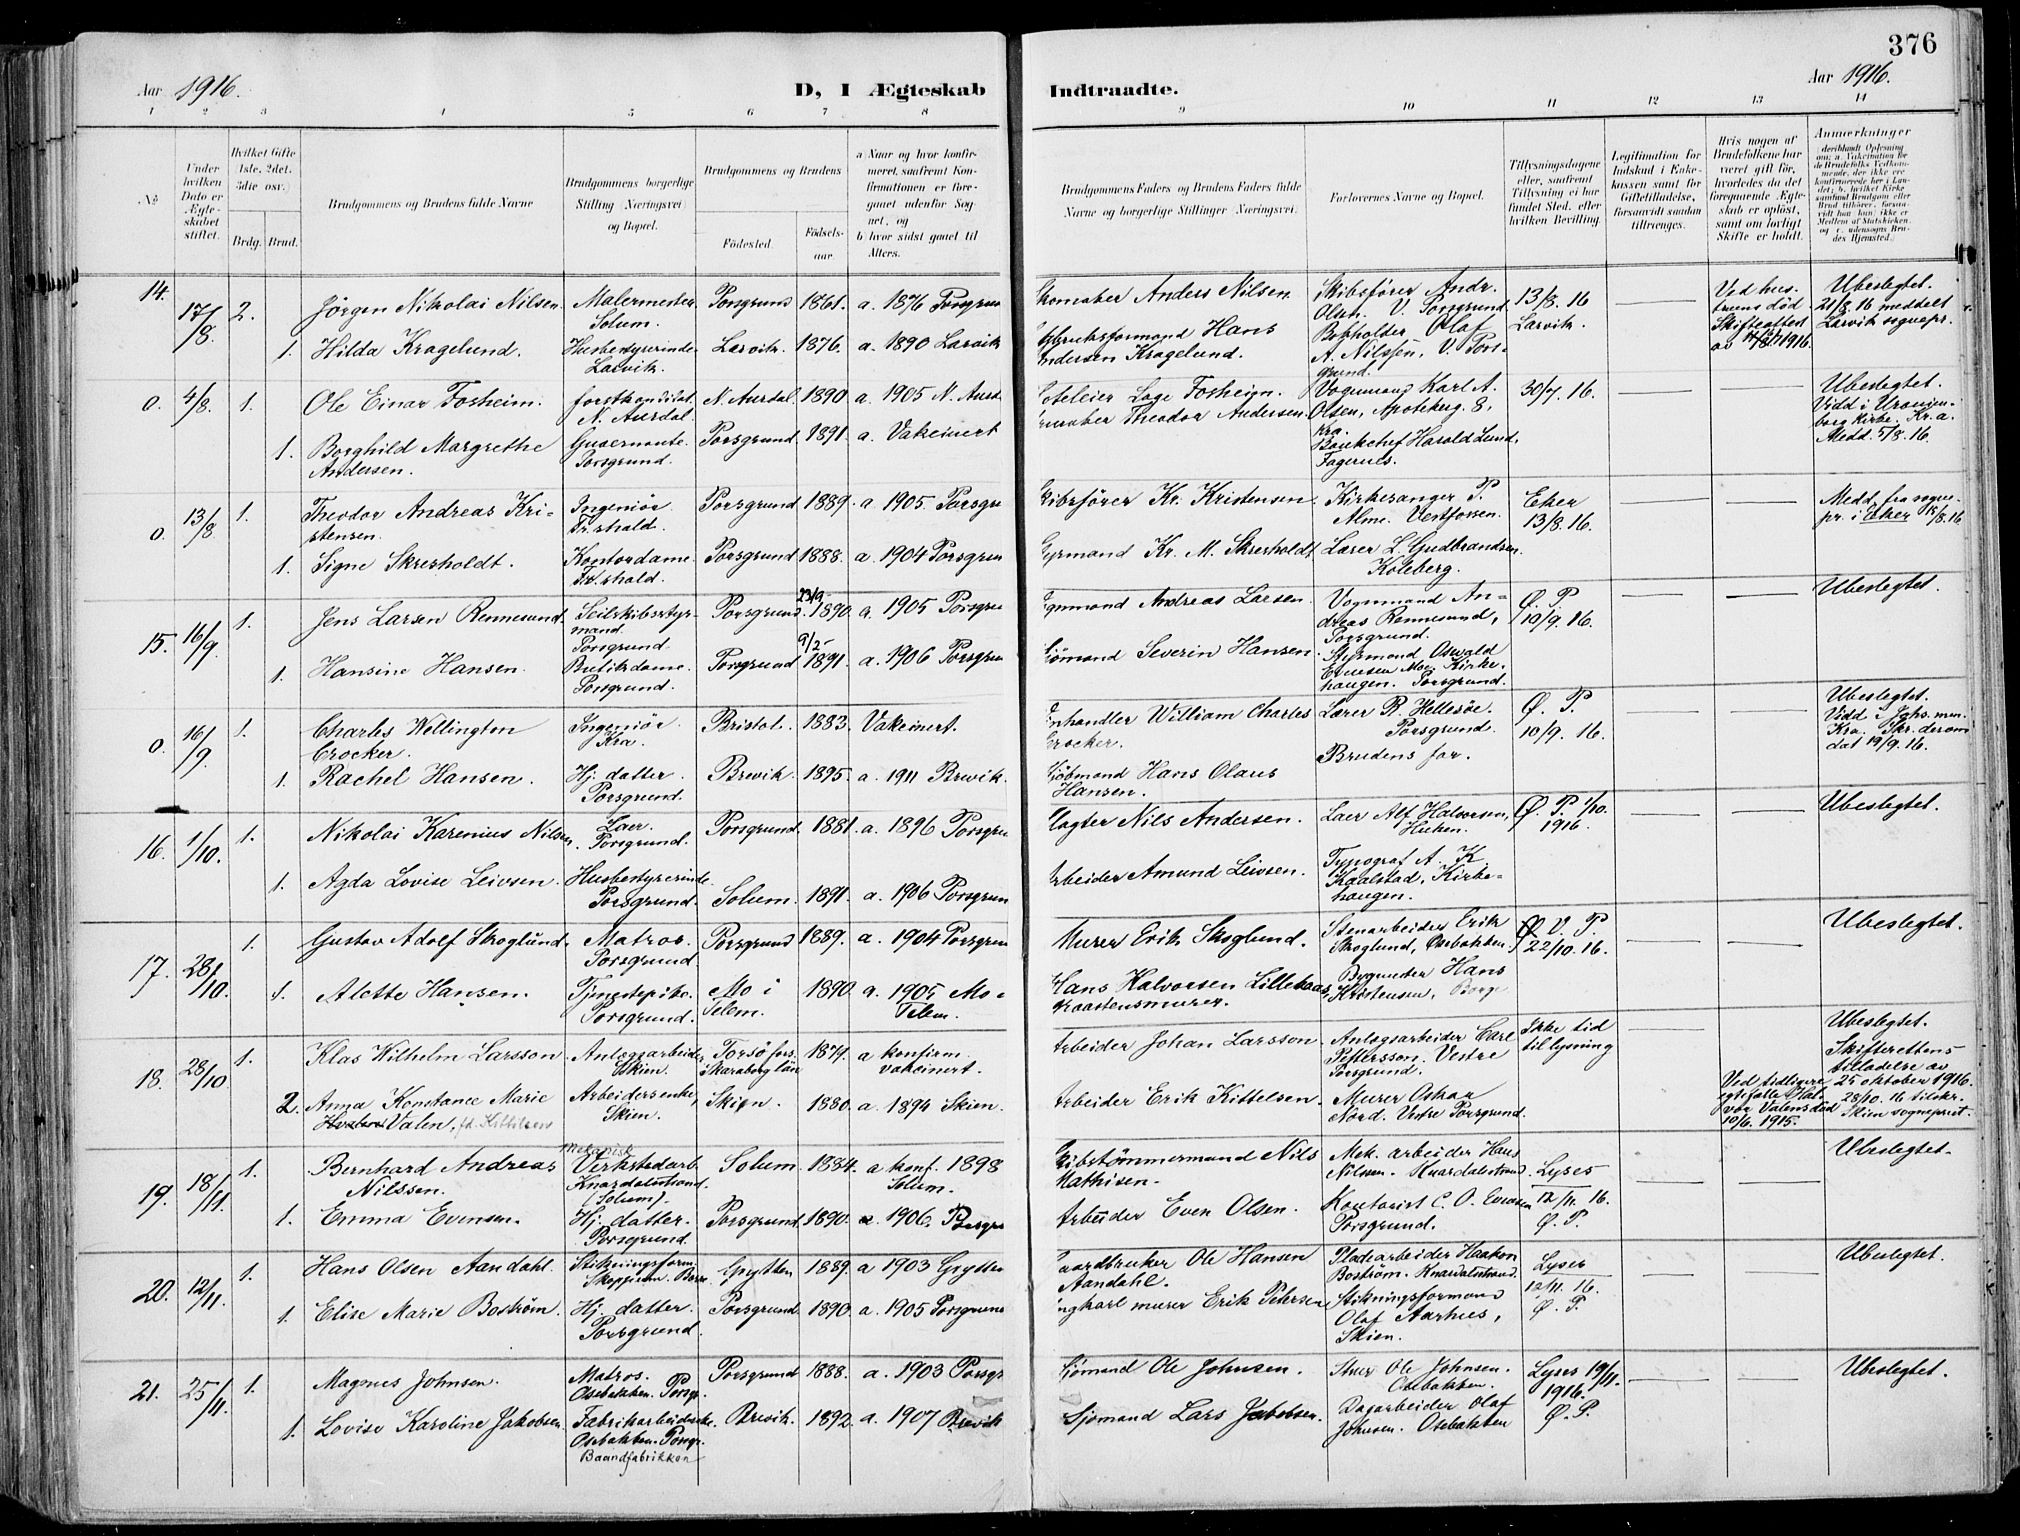 376
Aar 1916.
D, I Ægteskab Indtraadte.
Aar 1916.
1 2 3 4 5 6 7 8 9 10 11 12 13 14
No
Under hvilken Dato er Ægteskabet stiftet.
Hvilket Gifte 1ste, 2det, 3die osv.
Brdg. Brud.
Brudgommens og Brudens fulde Navne
Brudgommens borgerlige Stilling (Næringsvei) og Bopæl.
Brudgommens og Brudens
Födested.
Födsels-aar.
a) Naar og hvor konfirmeret, saafremt Konfirmationen er foregaaet udenfor Sognet, og
b) hvor sidst gaaet til Alters.
Brudgommens Faders og Brudens Faders fulde Navne og borgerlige Stillinger (Næringsvei).
Forlovernes Navne og Bopæl.
Tillysningsdagene eller, saafremt Tillysning ei har fundet Sted, efter hvilken Bevilling.
Legitimation for Indskud i Enkekassen samt for Giftetilladelse, forsaavidt saadan tiltrænges.
Hvis nogen af Brudefolkene har været gift før, hvorledes da det foregaaende Ægteskab er opløst, samt om lovligt Skifte er holdt.
Anmærkninger
14. 17/8. 2. Jörgen Nikolai Nilsen. Malermester Solum. Porsgrund 1861. a. 1876 Porsgrun
Anders Nilsen Skibsfører Andr. Olsen. V. Porsgrund. 13/8. 16 Larvik.
Ved hustruens död Skifteattest av 1916.
Ubeslegtet. 21/8. 16 meddelt Larvik sognepr.
1. Hilda Kragelund. Husbestyrerinde Larvik. Larvik. 1876. a. 1890 Larvik
Hans Andersen Kragelund. Bokholder Olaf A. Nilssen, V. Porsgrund.
0. 4/8. 1. Ole Einar Fosheim. forstkandidat N. Aurdal. N. Aurdal 1890 a. 1905 N. Aurd
Lage Fosheim. Vognmand Karl A. Olsen, Apotekerg. 8, Kra. 30/7. 16.
Ubeslegtet. Viet i Uranienborg kirke, Kr.a. Medd. 5/8. 16.
1. Borghild Margrethe Andersen. Guvernante. Porsgrund. Porsgrund. 1891. a. Vakcinert
Theodor Andersen. Bankchef Harold Lund, Fagernes.
0. 13/8 1. Theodor Andreas Kristensen. Ingeniør Fr.shald. Porsgrund 1889. a. 1905. Porsgru
Kr. Kristensen. Kirkesanger P. Alme. Vestfossen. Eker 13/8. 16.
Medd. fra sognepr. i Eker 18/8. 16
1. Signe Skresholdt. Kontordame. Fr.shald. Porsgrund 1888. a. 1904 Porsgrun
Kr. M. Skresholdt Lærer L. Gudbrandsen. Koleberg.
15. 16/9. 1. Jens Larsen Rennesund. Seilskibsstyrmand. Porsgrund. Porsgrund. 23/9 1890. a. 1905 Porsgru
Andreas Larsen. Vognmand Andreas Rennesund, Porsgrund. Ø. P 10/9. 16.
Ubeslegtet.
1. Hansine Hansen. Butikdame. Porsgrund. Porsgrund 9/2 1891. a. 1906 Porsgrun
Severin Hansen. Styrmand Oswald Evensen Moe, Kirkehaugen. Porsgrund.
0. 16/9. 1. Charles Wellington Crocker. Ingeniør Kra. Bristol. 1883. Vakcinert.
William Charles Crocker. Lærer P. Hellesöe. Porsgrund. Ø. P. 10/9. 16.
1. Rachel Hansen. Hj. datter. Porsgrund. Brevik. 1895. a. 1911 Brevik.
Hans Olaus Hansen. Brudens far.
16. 1/10. 1. Nikolai Karenius Nilsen. Porsgrund. Porsgrund. 1881. a. 1896 Porsgru
Nils Andersen. Alf Halvorsen, Ø. P. 1/10. 1916.
Ubeslegtet.
1. Agda Lovise Leivsen. Husbestyrerinde. Porsgrund. Solum. 1891. a. 1906 Porsgrun
Amund Leivsen. Typograf A. K. Kaalstad, Kirkehaugen.
17. 28/10. 1. Gustav Adolf Skoglund. Matros. Porsgrund. Porsgrund 1889. a. 1904 Porsgrun
Murer Erik Skoglund. Stenarbeider Erik Skoglund, Osebakken. Ø V. P. 22/10. 16.
Ubeslegtet.
1. Alette Hansen. Tjenestepike. Porsgrund. Mo i Telem. 1890. a. 1905 Mo i Telem.
Hans Halvorsen Lillekaas, Graastensmurer. Bygmester Hans Kristensen, Borge
18. 28/10. 1. Klas Wilhelm Larsson Anlægsarbeider Skien. Torsö fors. Skaraborg län 1879. a konfirm. vakcinert.
Johan Larsson. Anlægsarbeider Carl Pettersson. Vestre Porsgrund. Ikke tid til lysning
Ubeslegtet. Skifterettens tilladelse av 25 oktober 1916. 28/10. 16 tilskr. Skien sogneprest.
2. Anna Konstance Marie Valen, fd. Kittilsen Arbeidersenke, Skien. Skien. 1880. a. 1894 Skien.
Erik Kittelsen. Murer Oskar Nord. Vestre Porsgrund.
Ved tidligere egtefælle Halvor Valens död 10/6. 1915.
19. 18/11. 1. Bernhard Andreas Nilssen. Mekanisk Verkstedarb. Knardalstrand (Solum). Solum. 1884. a konf. 1898 Solum.
Nils Mathisen. Mek. arbeider Hans Nilsen. Knardalstrand. Lyses 12/11. 16. Ø. P.
Ubeslegtet.
1. Emma Evensen. Hj. datter. Porsgrund. Porsgrund. 1890. a. 1906. Porsgru
Even Olsen. Kontorist C. O. Evensen Porsgrund.
20. 12/11. 1. Hans Olsen Aandahl. Stikningsform. Grytten 1889. a 1903 Grytten
Ole Hansen Aandahl. Pladearbeider Haakon Boström. Knardalstrand. Lyses 12/11. 16. Ø. P.
Ubeslegtet.
1. Elise Marie Boström. Hj. datter. Porsgrund. Porsgrund 1890. a. 1905 Porsgrund
murer Erik Petersen Stikningsformand Olaf Aarhus, Skien.
21. 25/11. 1. Magnus Johnsen. Matros. Osebakken. Porsgr. Porsgrund 1888. a. 1903 Porsgr
Sjømand Ole Johnsen. Ole Johnsen. Osebakken. Lyses 19/11. 1916. Ø. P.
Ubeslegtet.
1. Lovise Karoline Jakobsen. Fabrikarbeiderske. Osebakken. Porsgr. Baandfabrikken Brevik. 1892. a. 1907 Brevik
Sjømand Lars Jakobsen. Dagarbeider Olaf Johnsen. Osebakken